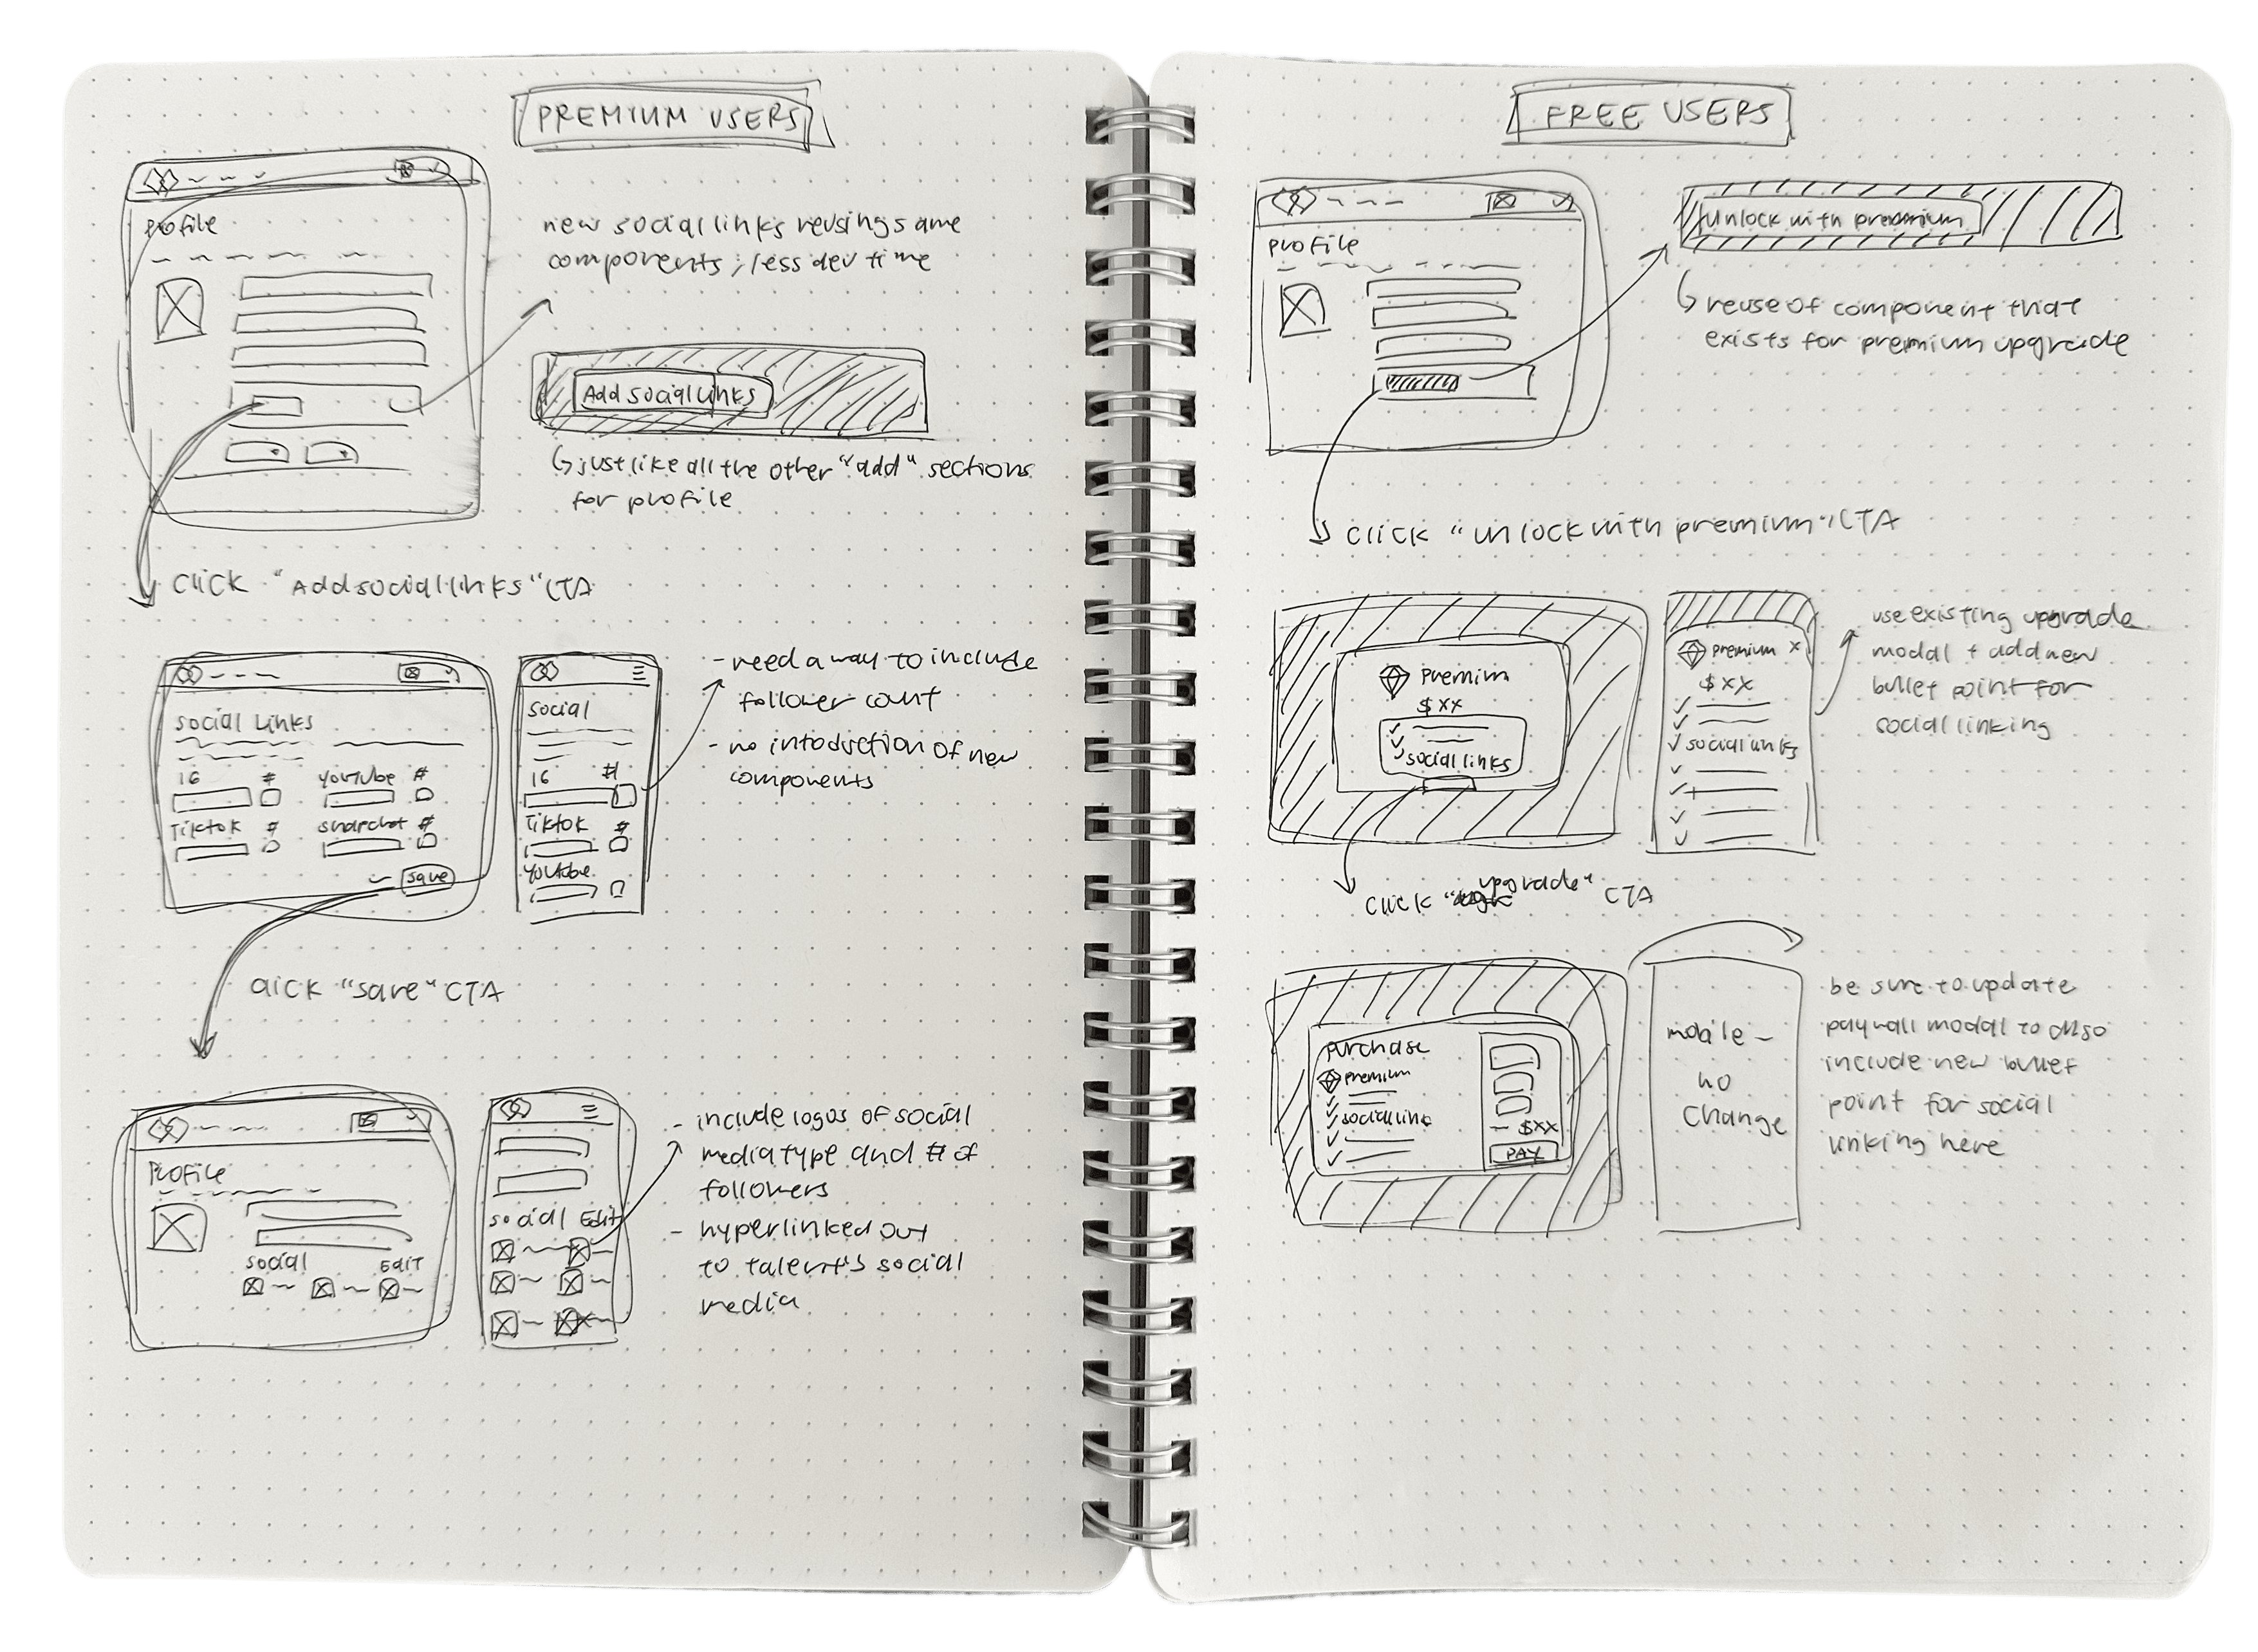 PREMIUM USERS
Profile
new social links reusing same
components ; less dev time
Add social links
just like all the other "add" sections
for profile
click "Add social links" CTA
social Links
IG #
YouTube #
Tiktok #
snapchat #
save
social
IG #
Tiktok #
Youtube
- need a way to include
follower count
- no intoduction of new
components
click "save" CTA
Profile
social Edit
social Edit
- include logos of social
media type and # of
followers
- hyperlinked out
to talent's social
media
FREE USERS
profile
Unlock with premium
reuse of component that
exists for premium upgrade
click "unlock with premium" CTA
Premium
$ XX
social links
Premium X
$ XX
social links
use existing upgrade
modal + add new
bullet point for
social linking
click "upgrade" CTA
purchase
premium
social link
$XX
PAY
mobile -
no
change
be sure to update
paywall modal to also
include new bullet
point for social
linking here